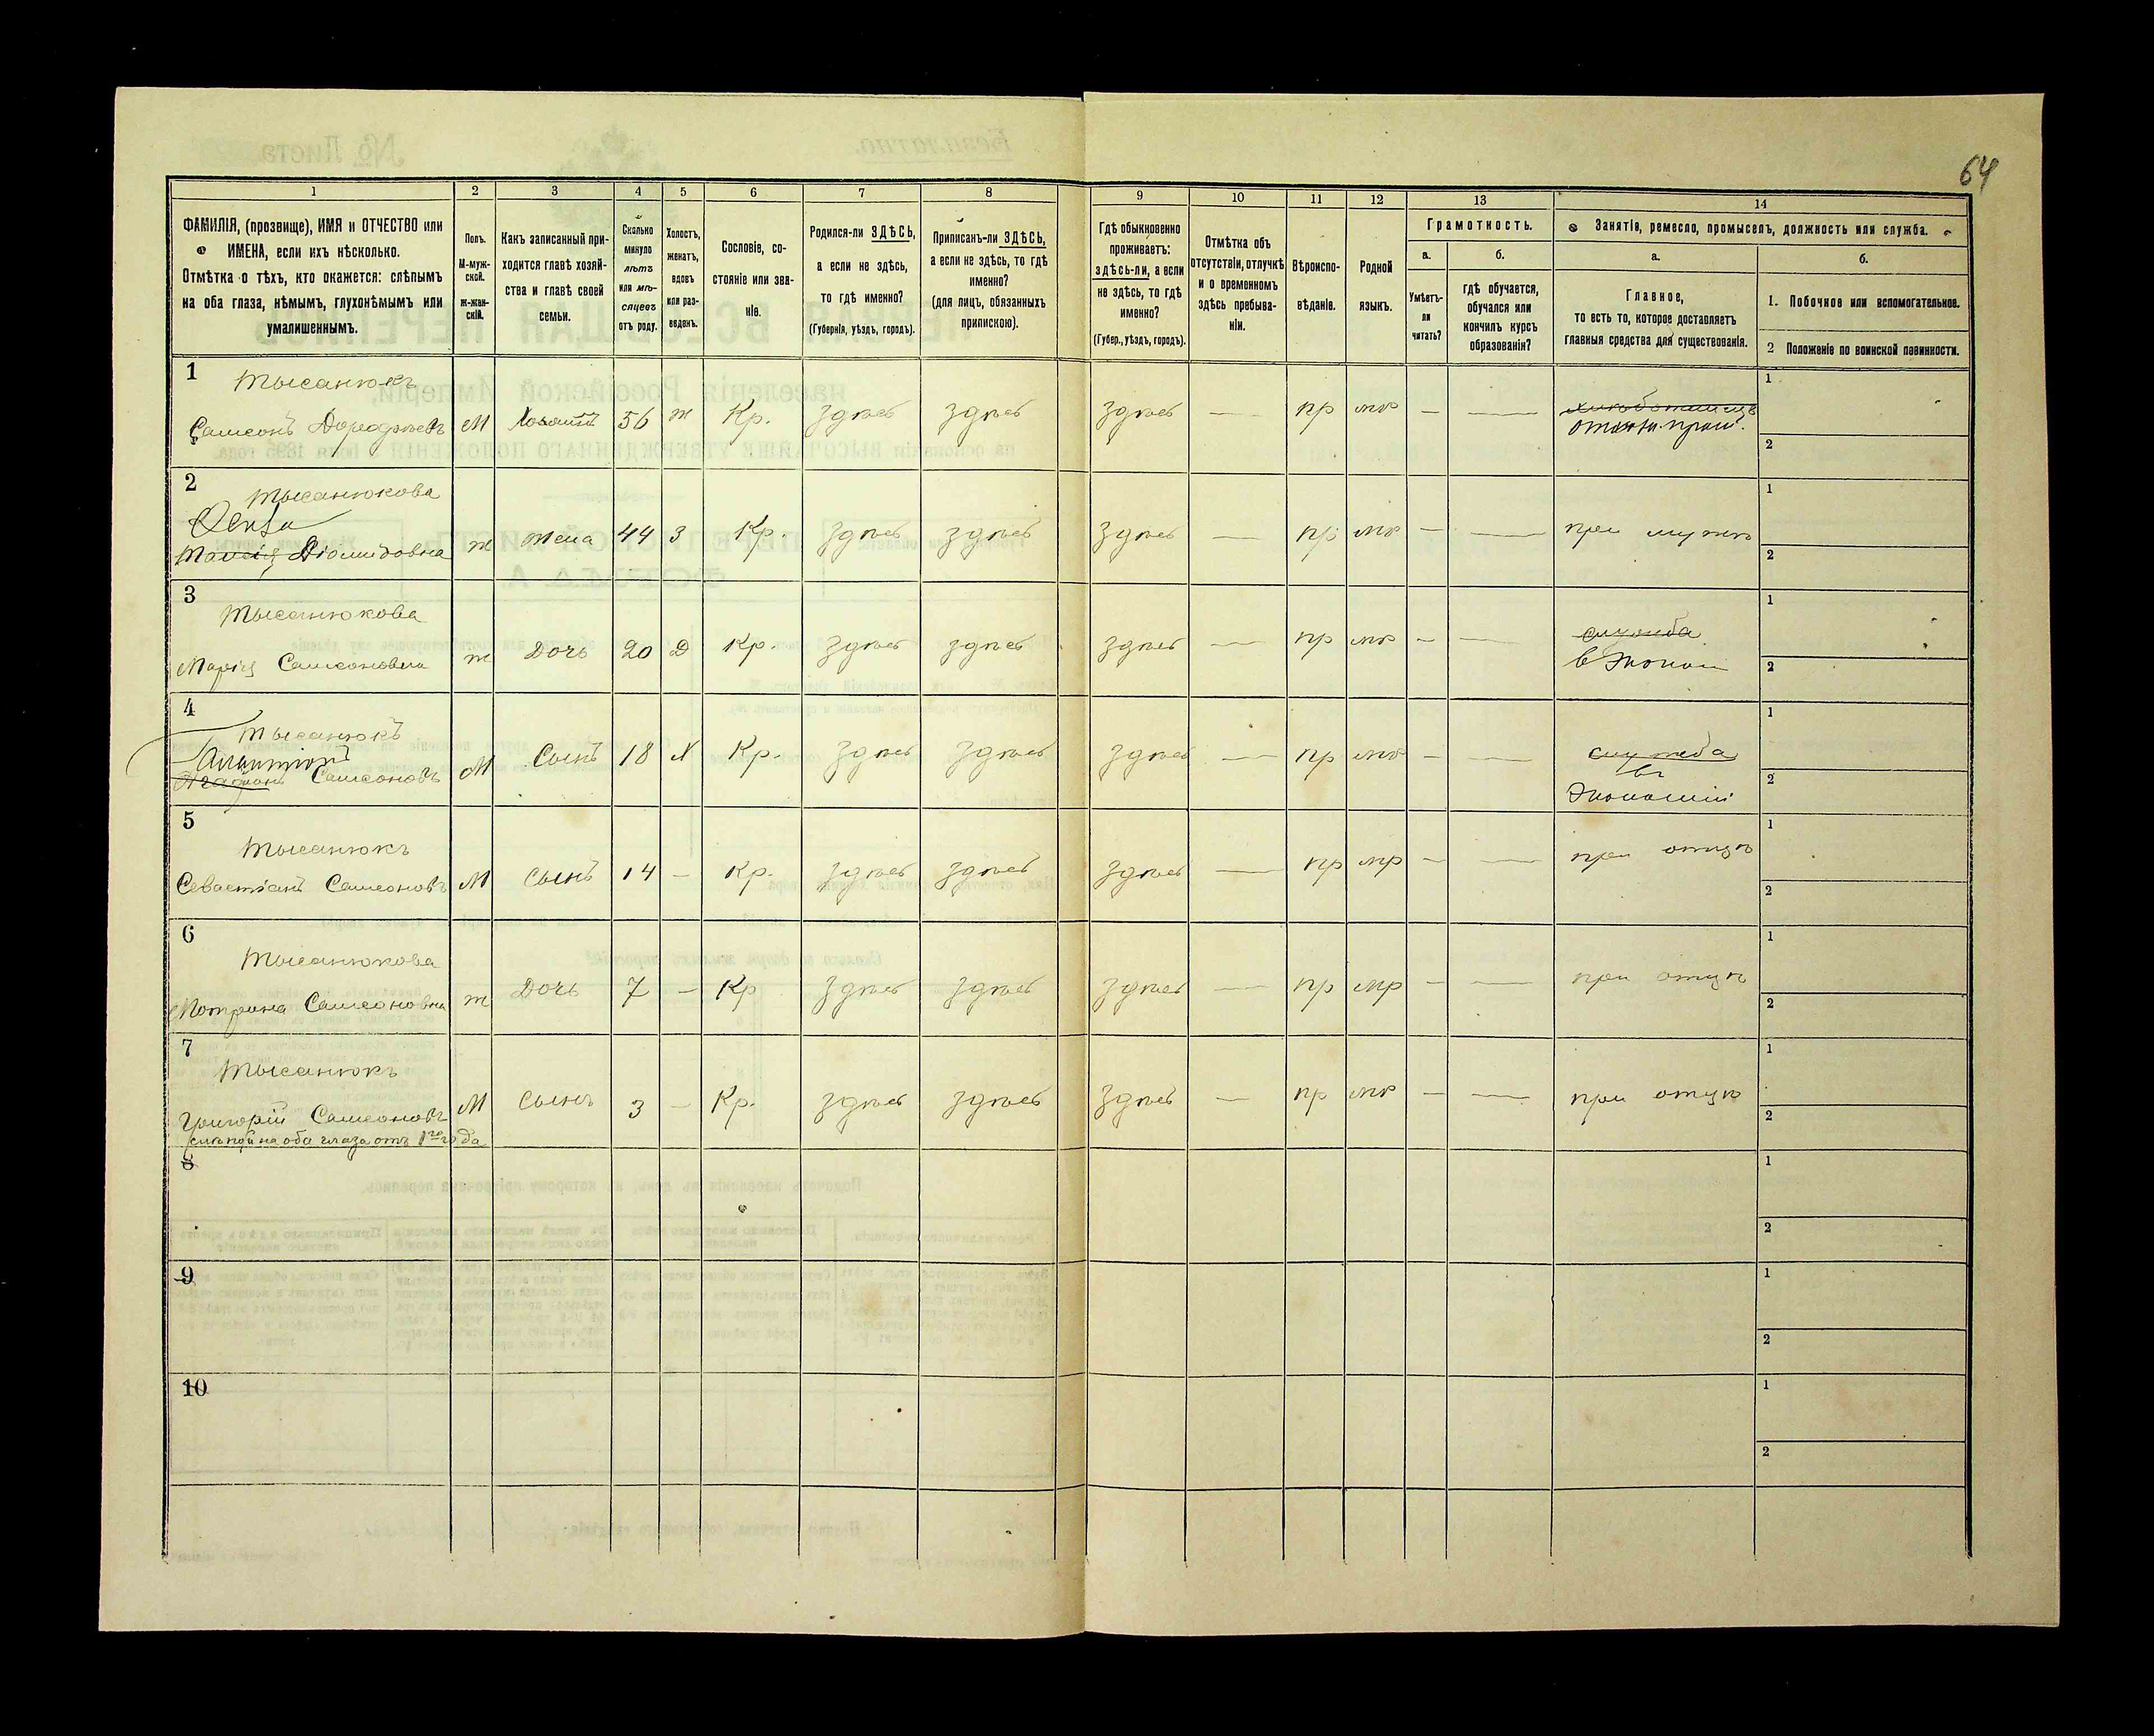 64
1 2 3 4 5 6 7 8 9 10 11 12 13 14
ФАМИЛІЯ, (прозвище), ИМЯ и ОТЧЕСТВО или
ИМЕНА, если ихъ нѣсколько.
Отмѣтка о тѣхъ, кто окажется: слѣпымъ
на оба глаза, нѣмымъ, глухонѣмымъ или
умалишеннымъ.
Полъ.
М-муж-
ской.
Ж-жен-
скій.
Какъ записанный при-
ходится главѣ хозяй-
ства и главѣ своей
семьи.
Сколько
минуло
лѣтъ
или мѣ-
сяцевъ
отъ роду.
Холостъ,
женатъ,
вдовъ
или раз-
веденъ.
Сословіе, со-
стояніе или зва-
ніе.
Родился-ли ЗДѢСЬ,
а если не здѣсь,
то гдѣ именно?
(Губернія, уѣздъ, городъ).
Приписанъ-ли ЗДѢСЬ,
а если не здѣсь, то гдѣ
именно?
(для лицъ, обязанныхъ
припискою).
Гдѣ обыкновенно
проживаетъ:
здѣсь-ли, а если
не здѣсь, то гдѣ
именно?
(Губер., уѣздъ, городъ).
Отмѣтка объ
отсутствіи, отлучкѣ
и о временномъ
здѣсь пребыва-
ніи.
Вѣроиспо-
вѣданіе.
Родной
языкъ.
Грамотность.
а.
Умѣетъ-
ли
читать?
б.
гдѣ обучается,
обучался или
кончилъ курсъ
образованія?
Занятія, ремесло, промыселъ, должность или служба.
а.
Главное,
то есть то, которое доставляетъ
главныя средства для существованія.
б.
1. Побочное или вспомогательное.
2 Положеніе по воинской повинности.
1 Тысанюкъ
Самсонъ М Хозяинъ 56 ж Кр. здѣсь здѣсь здѣсь — пр мр — —
1
2
2 Тысанюкова
Діомидовна ж жена 44 З Кр. здѣсь здѣсь здѣсь — пр мр — — при мужѣ
1
2
3 Тысанюкова
Марія Самсоновна ж Дочь 20 Д Кр. здѣсь здѣсь здѣсь — пр мр — — служба
в Эконом
1
2
4 Тысанюкъ
Самсоновъ М Сынъ 18 Х Кр. здѣсь здѣсь здѣсь — пр мр — — служба
въ
Экономіи
1
2
5 Тысанюкъ
Севастіанъ Самсоновъ М сынъ 14 — Кр. здѣсь здѣсь здѣсь — пр мр — — при отцѣ
1
2
6 Тысанюкова
Мотрина Самсоновна ж Дочь 7 — Кр здѣсь здѣсь здѣсь — пр мр — — при отцѣ
1
2
7 Тысанюкъ
Григорій Самсоновъ М сынъ 3 — Кр. здѣсь здѣсь здѣсь — пр мр — — при отцѣ
слѣпой на оба глаза отъ 1го года
1
2
8
1
2
9
1
2
10
1
2